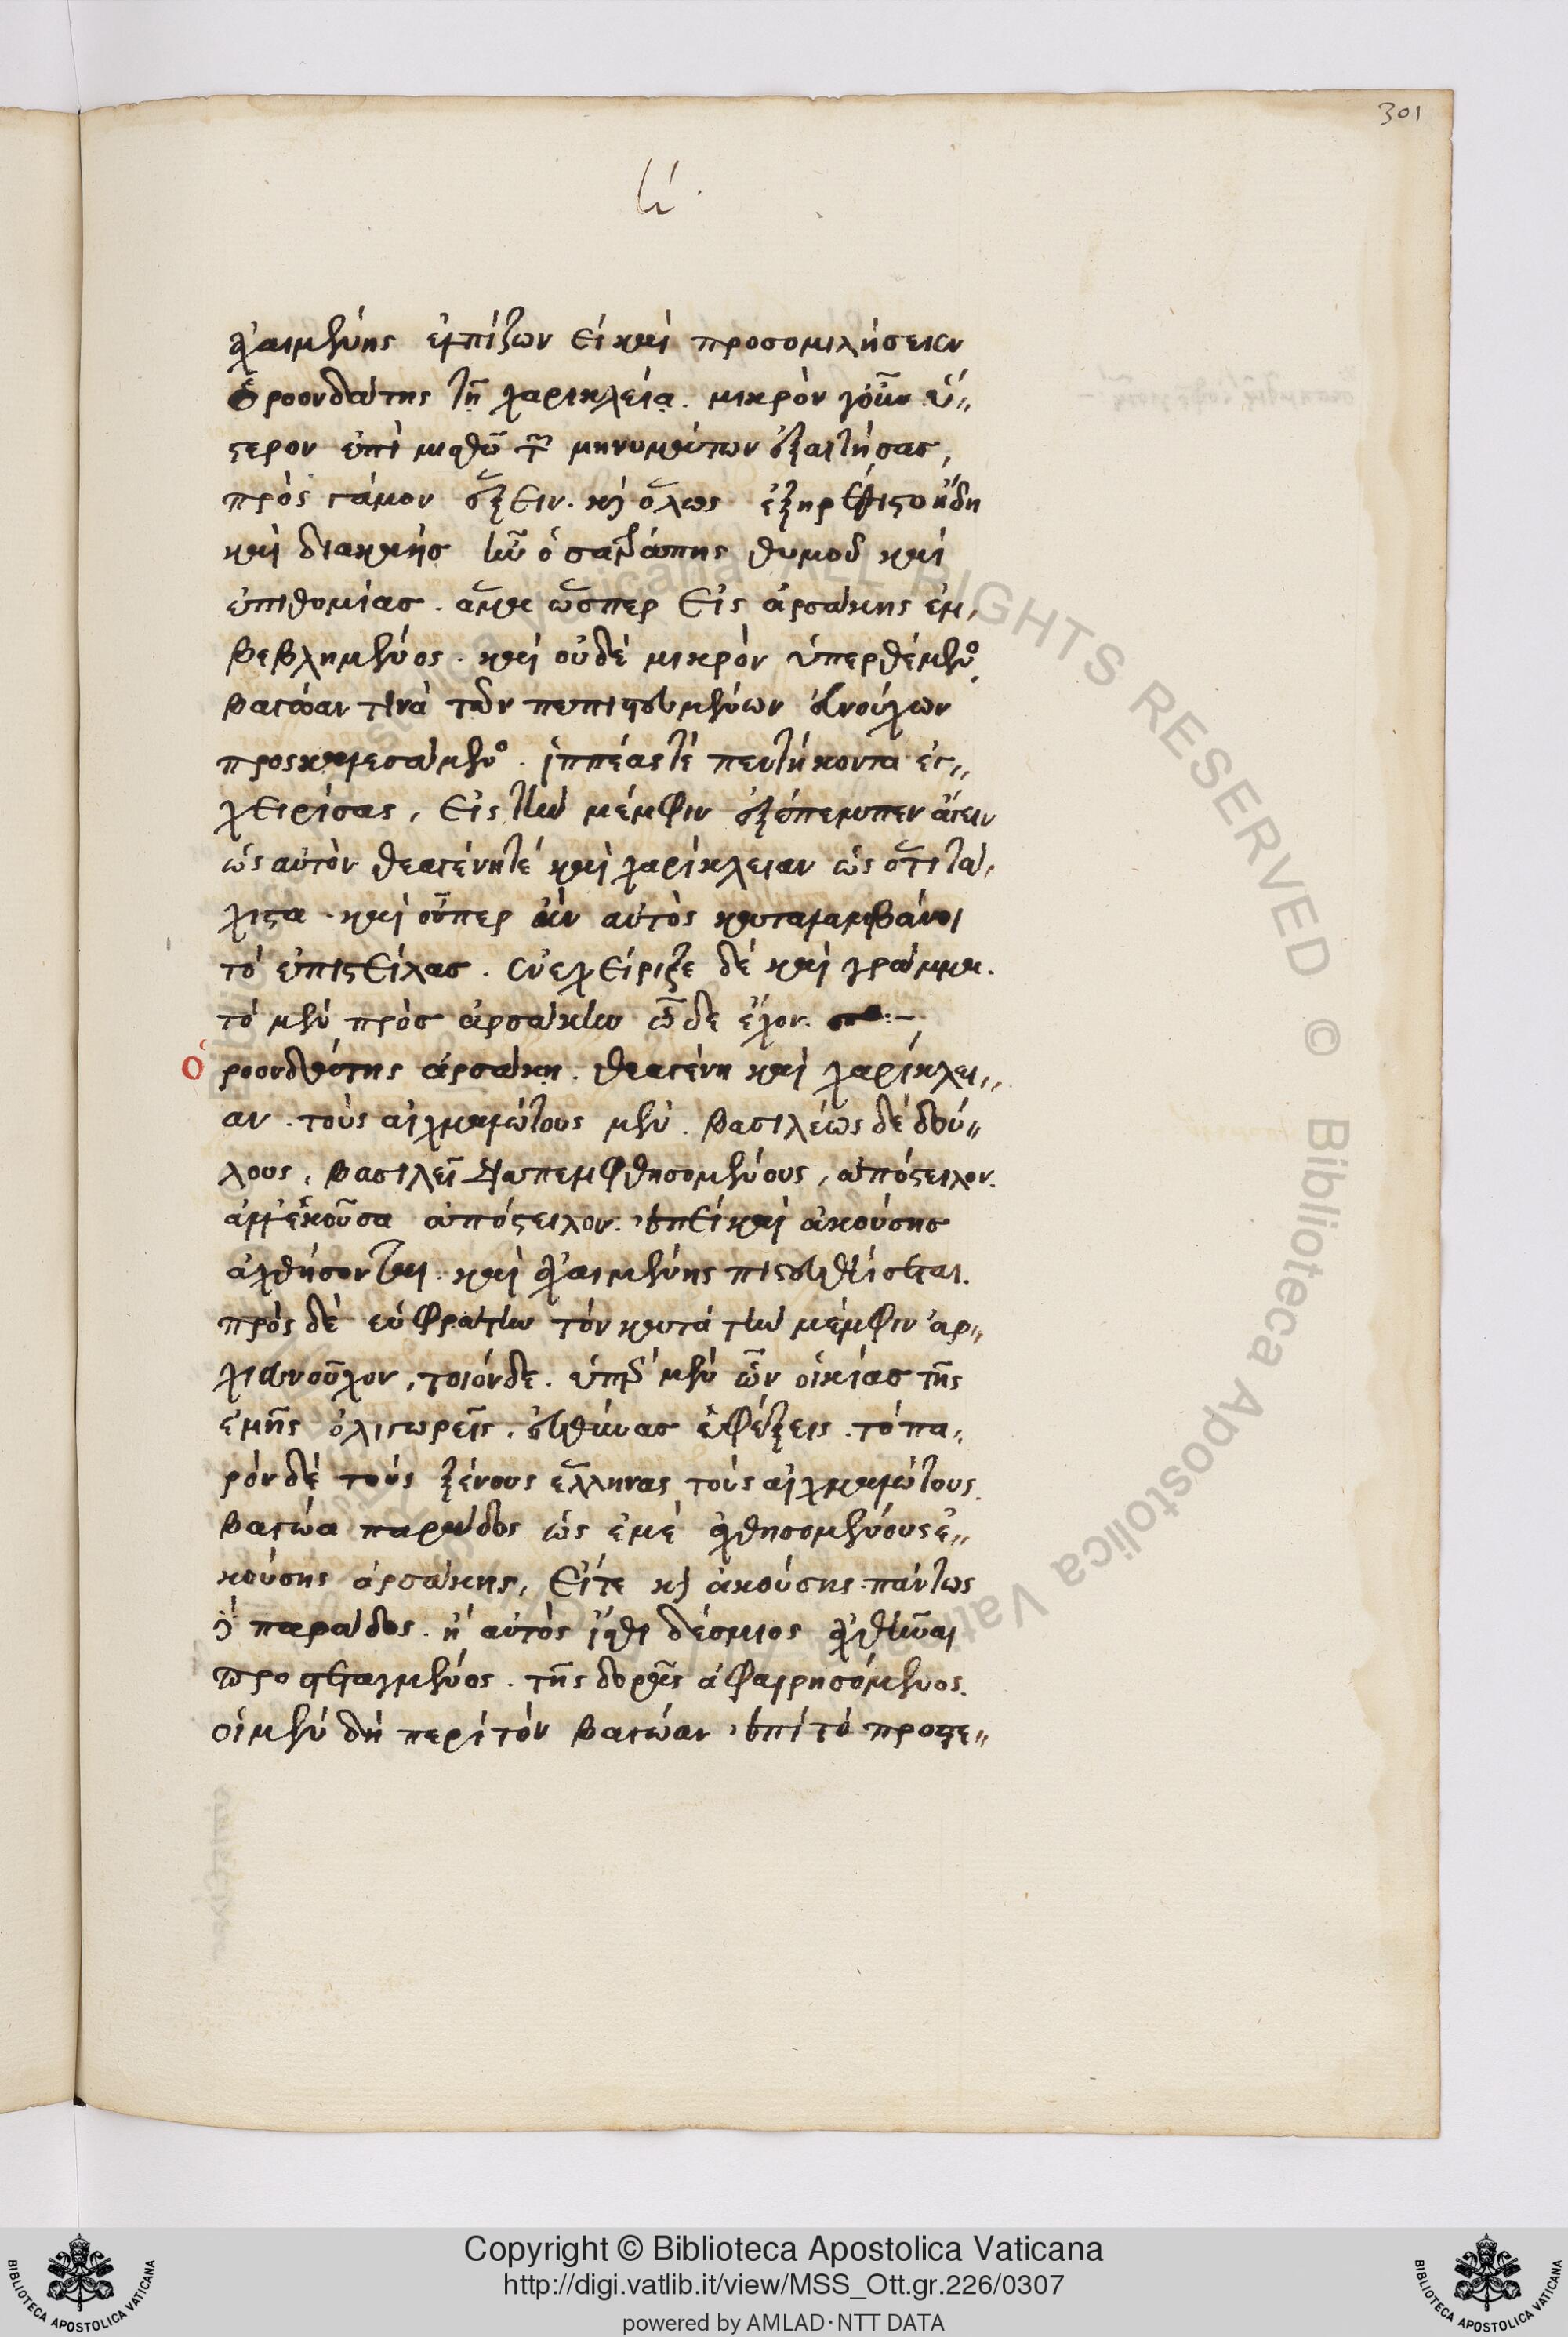 301
ἀχαιμένης ἐλπίζων εἰ καὶ προσομιλήσειεν
ὀροονδάτης τῇ χαρικλείᾳ. μικρὸν γοῦν ὕ-
στερον ἐπὶ μισθῷ τῶν μηνυμάτων ἐξαιτήσας,
πρὸς γάμον ἕξειν. καὶ ὅλως ἐξηρέθιστο ἤδη
καὶ διακαὴς ἦν ὁ σατράπης θυμοῦ καὶ
ἐπιθυμίας. ἅμα ὥσπερ εἰς ἀρσάκης ἐμ-
βεβλημένος. καὶ οὐδὲ μικρὸν ὑπερθέμενος
βαγώαν τινὰ τῶν πεπιστευμένων εὐνούχων
προσκαλεσάμενος. ἱππέας τὲ πεντήκοντα ἐγ-
χειρίσας, εἰς τὴν μέμφιν ἐξέπεμπεν ἄγειν
ὡς αὐτὸν θεαγένην τὲ καὶ χαρίκλειαν ὡς ὅτι τά-
χιστα. καὶ οὗπερ ἂν αὐτὸς καταλαμβάνοι
τὸ ἐπιστείλας. ἐνεχείριζε δὲ καὶ γράμμα.
τὸ μὲν πρὸς ἀρσάκην ὧδε ἔχον. :-
ὀροονδάτης ἀρσάκῃ. θεαγένη καὶ χαρίκλει-
αν. τοὺς αἰχμαλώτους μὲν. βασιλέως δὲ δού-
λους, βασιλεῖ διαπεμφθησομένους, ἀπόστειλον.
ἀλλ' ἑκοῦσα ἀπόστειλον. ἐπεὶ καὶ ἀκούσης
ἀχθήσονται. καὶ ἀχαιμένης πιστευθήσεται.
πρὸς δὲ εὐφράτην τὸν κατὰ τὴν μέμφιν ἀρ-
χιευνοῦχον, τοιόνδε. ὑπὲρ μὲν ὧν οἰκίας τῆς
ἐμῆς ὀλιγωρεῖς, εὐθύνας ὑφέξεις. τὸ πα-
ρὸν δὲ τοὺς ξένους ἕλληνας τοὺς αἰχμαλώτους.
βαγώα παράδος ὡς ἐμὲ ἀχθησομένους ἑ-
κούσης ἀρσάκης, εἴτε καὶ ἀκούσης. πάντως
δὲ παράδος. ἢ αὐτὸς ἴσθι δέσμιος ἀχθῆναι
προστεταγμένος. τῆς δορᾶς ἀφαιρησόμενος.
οἱ μὲν δὴ περὶ τὸν βαγώαν. ἐπὶ τὸ προστε-
Copyright © Biblioteca Apostolica Vaticana
http://digi.vatlib.it/view/MSS_Ott.gr.226/0307
powered by AMLAD·NTT DATA